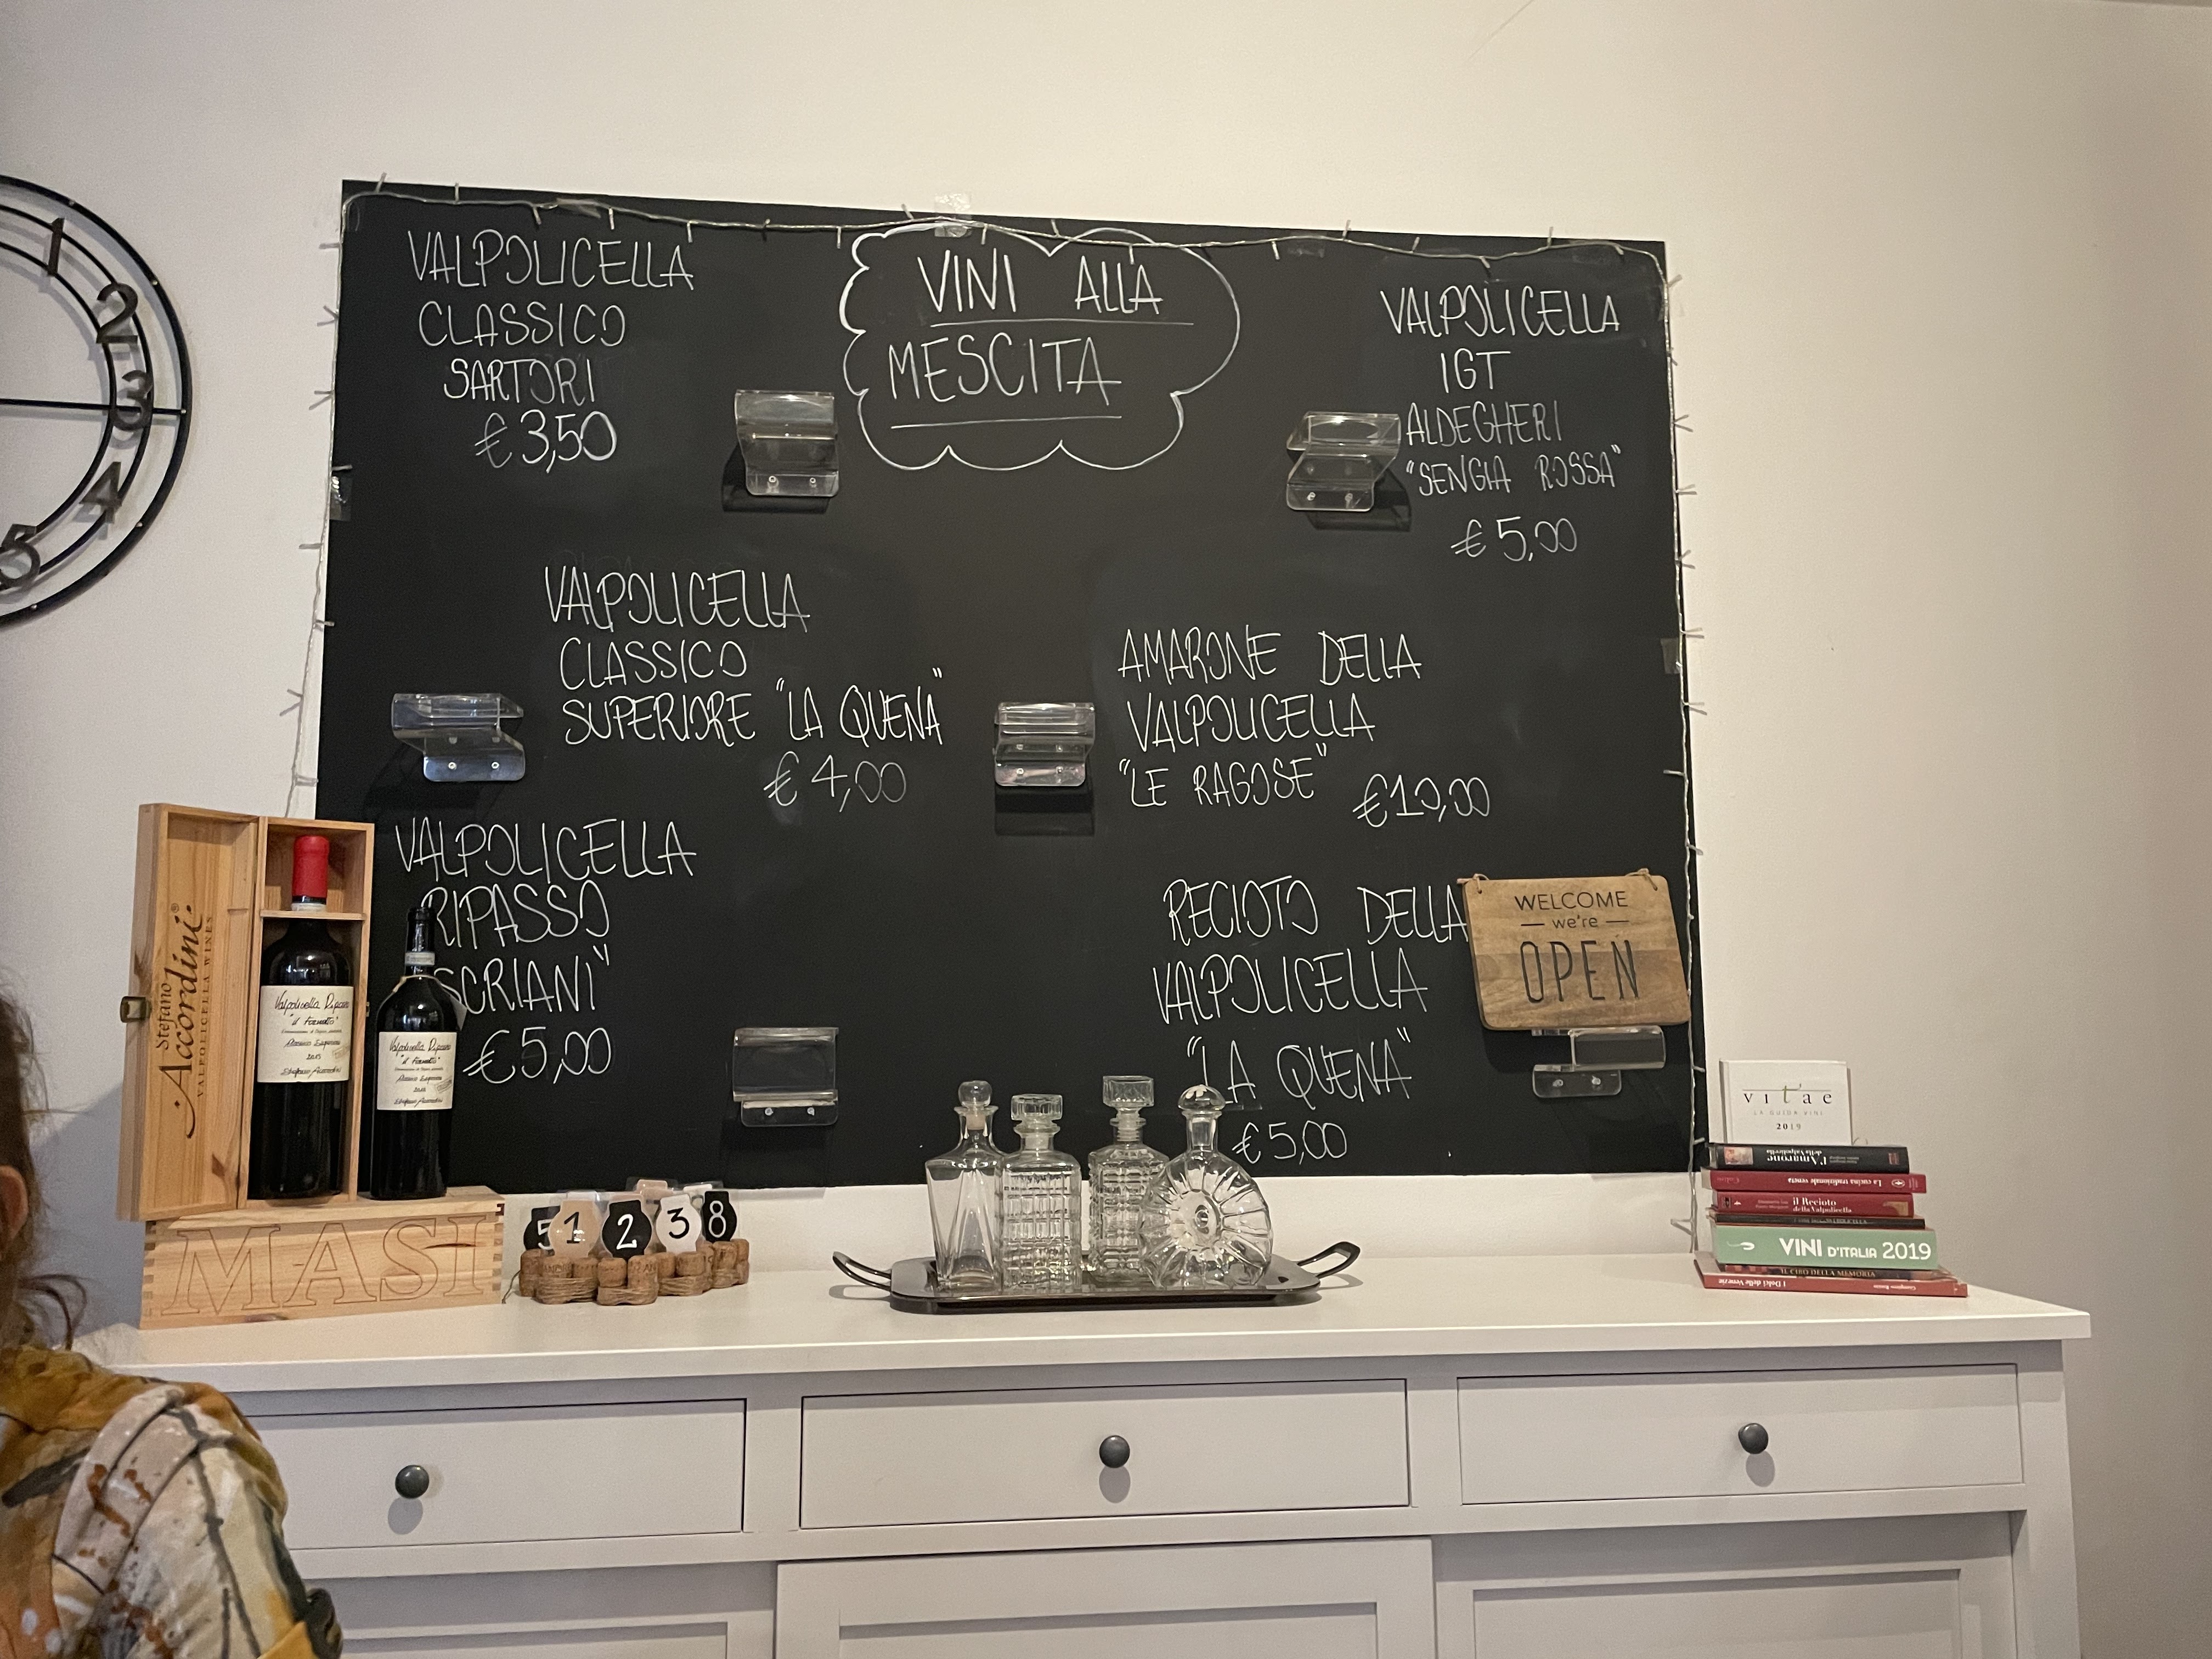 VINI ALLA
MESCITA
VALPOLICELLA
CLASSICO
SARTORI
€ 3,50
VALPOLICELLA
IGT
ALDEGHERI
"SENGIA ROSSA"
€ 5,00
VALPOLICELLA
CLASSICO
SUPERIORE "LA QUENA"
€ 4,00
AMARONE DELLA
VALPOLICELLA
"LE RAGOSE"
€10,00
VALPOLICELLA
RIPASSO
SCRIANI"
€5,00
RECIOTO DELLA
VALPOLICELLA
"LA QUENA"
€5,00
WELCOME
we're
OPEN
1
2
3
4
5
Stefano
Accordini®
VALPOLICELLA WINES
Valpolicella Ripasso
"il Fornetto"
2013
Stefano Accordini
Valpolicella Ripasso
"il Fornetto"
Stefano Accordini
MASI
5
1
2
3
8
vitae
LA GUIDA VINI
2019
L'Amarone
della Valpolicella
La cucina tradizionale veneta
il Recioto
della Valpolicella
VINI D'ITALIA 2019
IL CIBO DELLA MEMORIA
I Dolci delle Venezie